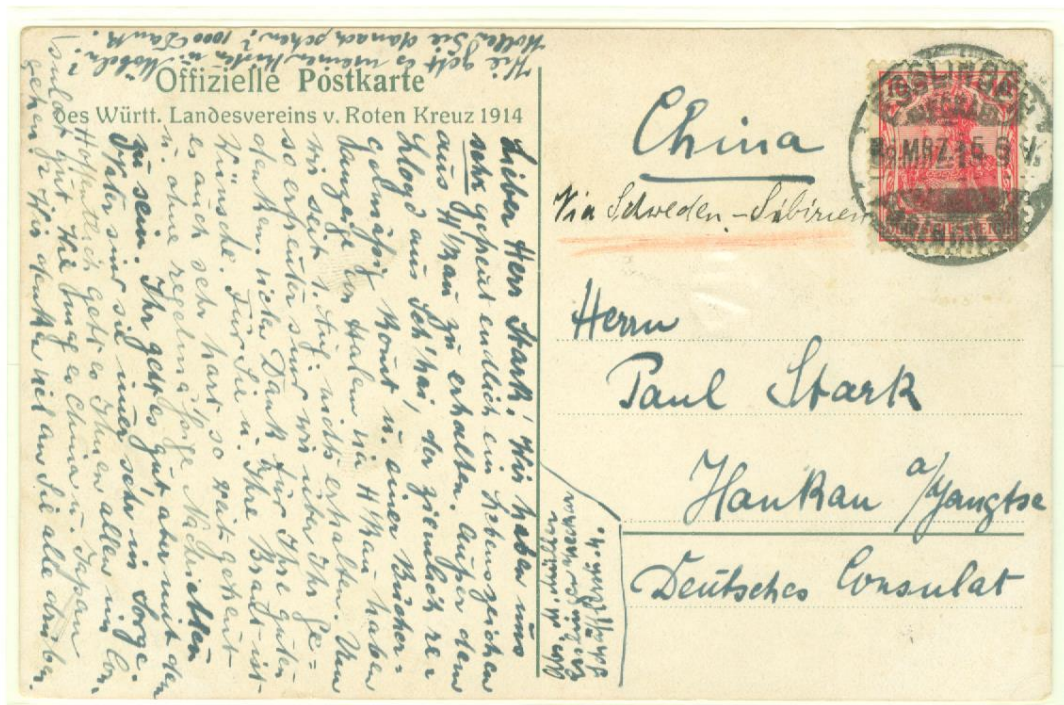 Offizielle Postkarte
des Württ. Landesvereins v. Roten Kreuz 1914
Lieber Herr Stark! Wir haben uns
sehr gefreut endlich ein Lebenszeichen
aus H'kau zu erhalten. Außer dem
Lloyd aus Sch'hai, der ziemlich re=
gelmäßig komt u. einer Bücher=
haben
wir seit 1. Aug. nichts erhalten. Um
so erfreuter sind wir über Ihr Ge=
denken, vielen Dank für Ihre guten
Wünsche. Für Sie u. Ihre Braut ist
es auch sehr hart so weit getrennt
u. ohne regelmäßige Nachrichten
zu sein. Ihr geht es gut aber mit dem
Vater sind sie immer sehr in Sorge.
Hoffentlich geht es Ihnen allen im Con=
sulat gut. Wie mag es China u. Japan
gehen? Wir denken viel an Sie alle drüben.
Wie geht es meinen Kisten u. Möbeln?
Wollen Sie danach sehen? 1000 Dank.
Esslingen
China
Via Schweden - Sibirien
ESSLINGEN
MRZ. 15
DEUTSCHES REICH
Herrn
Paul Stark
Hankau a/Yangtse
Deutsches Consulat